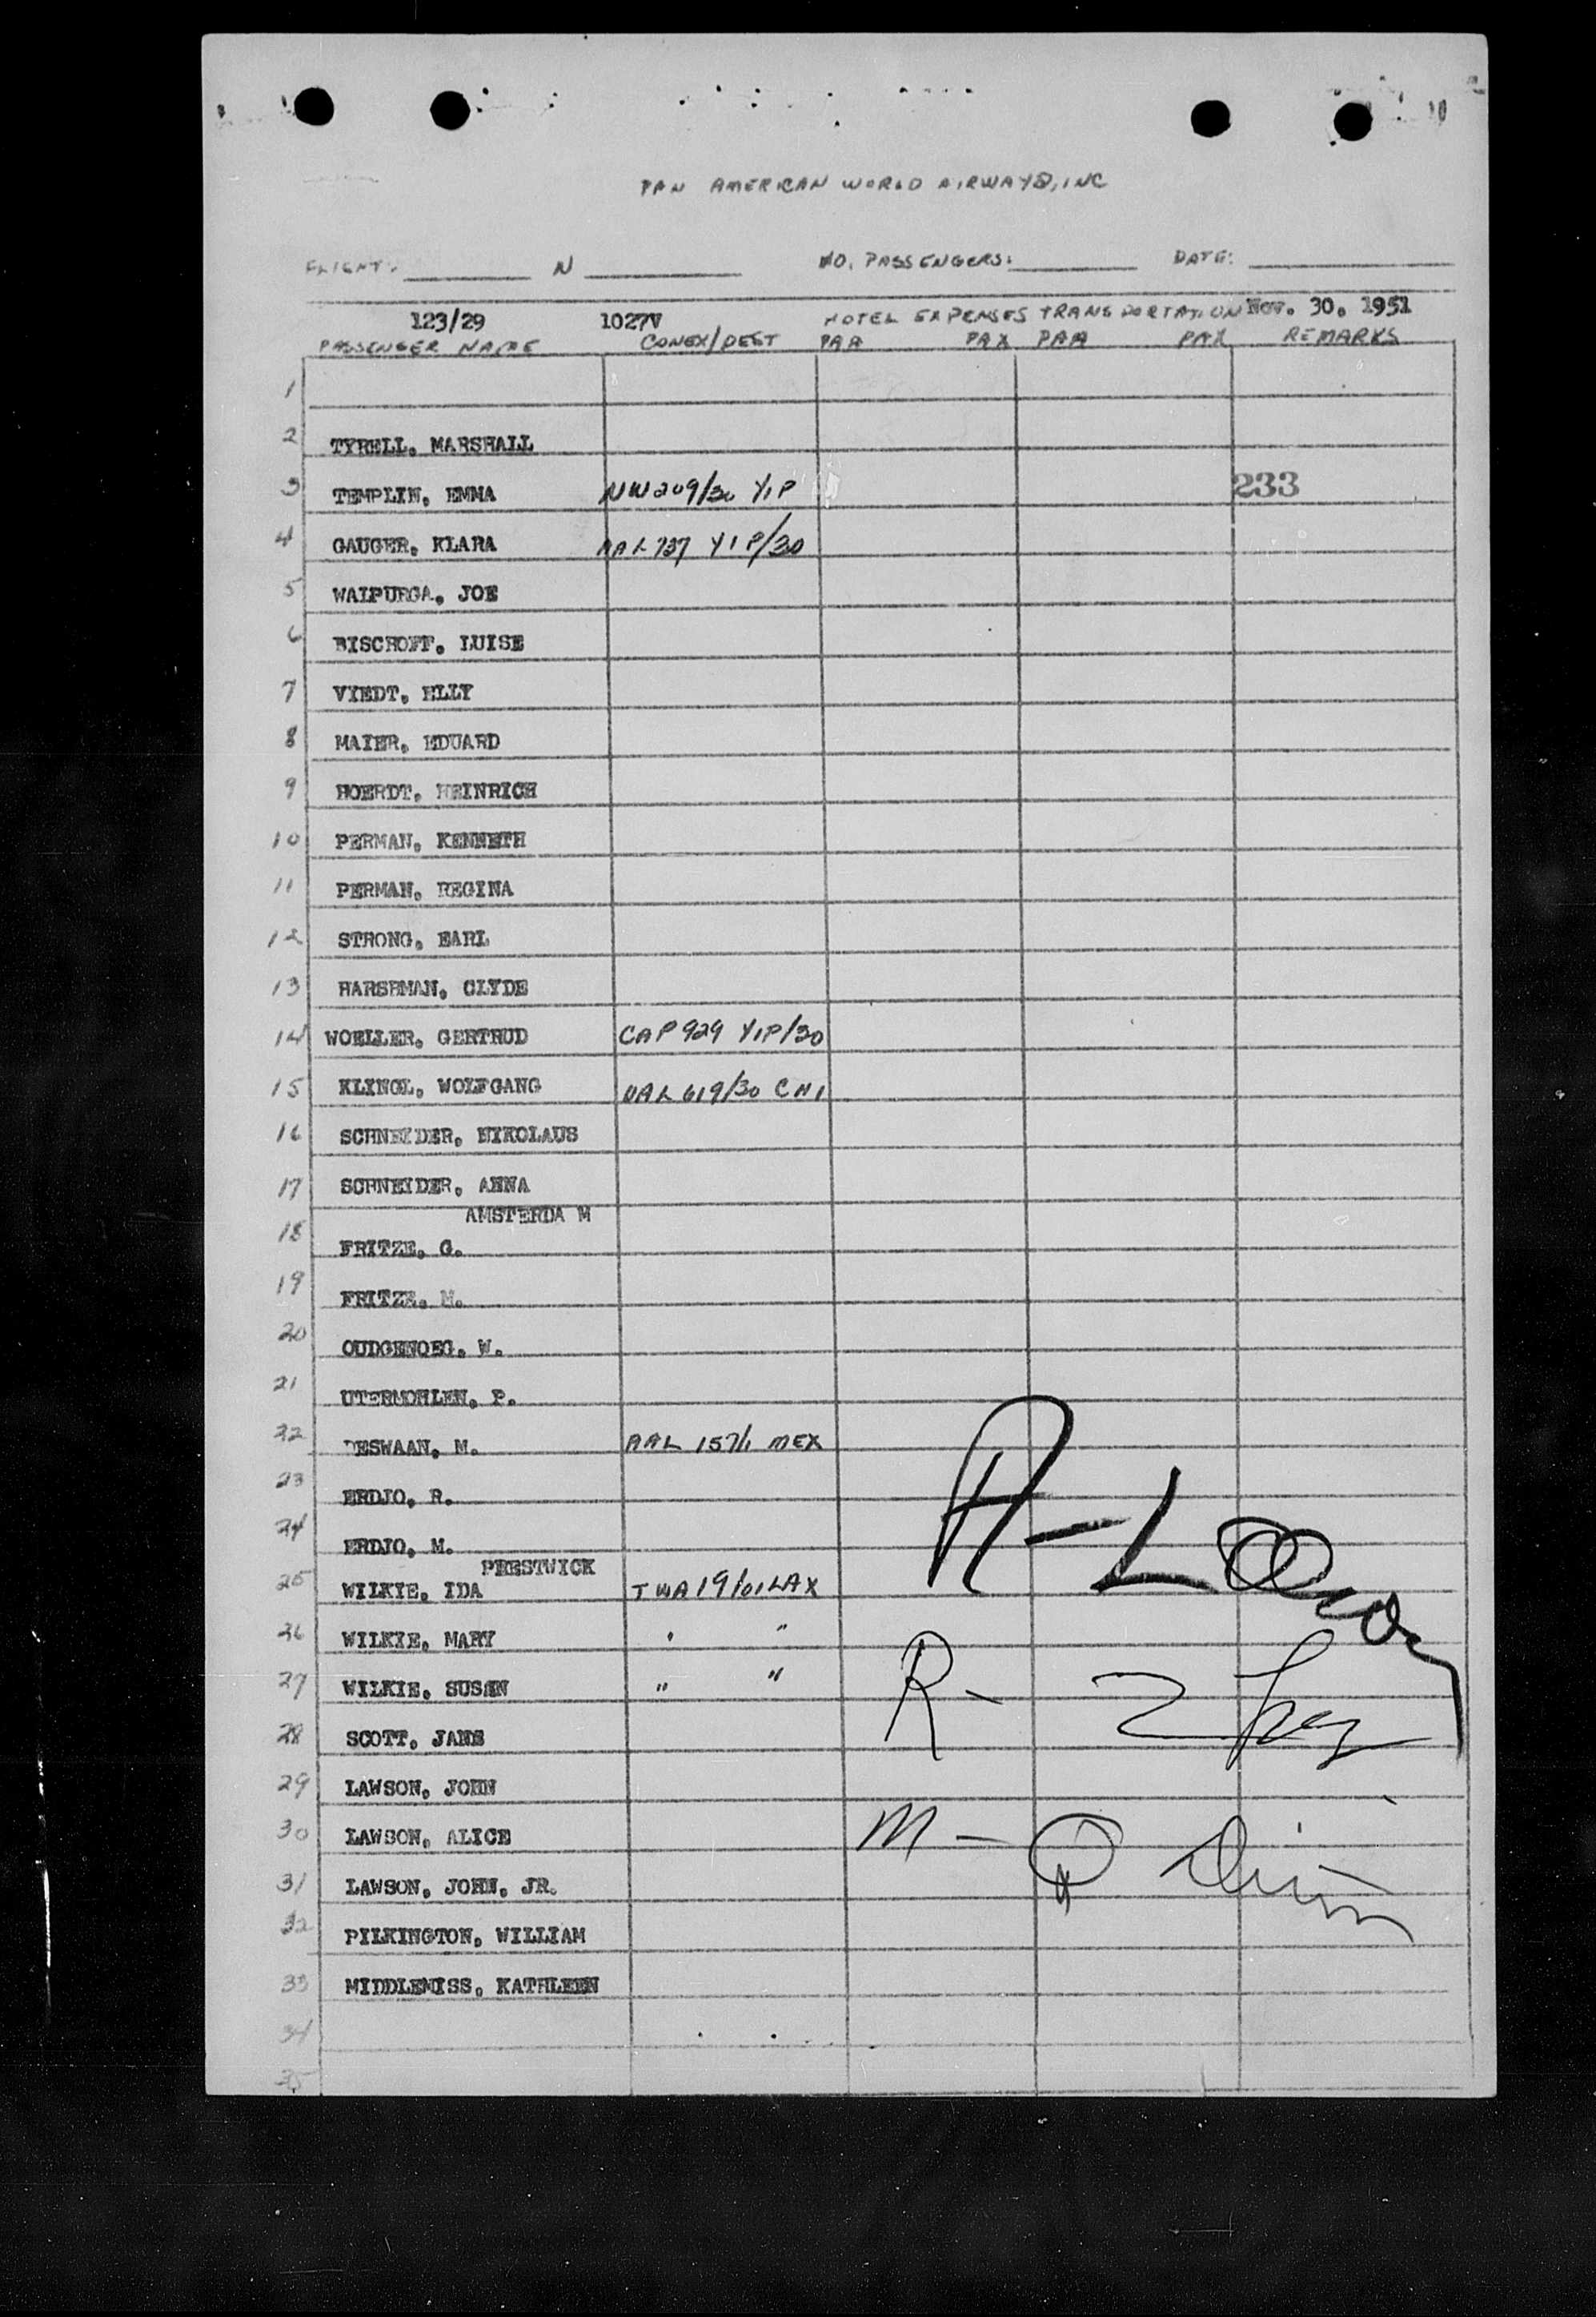 PAN AMERICAN WORLD AIRWAYS, INC
FLIGHT: N NO. PASSENGERS: DATE:
123/29 1027V HOTEL EXPENSES TRANSPORTATION Nov. 30, 1951
PASSENGER NAME CONEX/DEST PAA PAX PAA PAX REMARKS
1
2 TYRELL, MARSHALL
3 TEMPLIN, EMMA NW209/30 YIP 233
4 GAUGER, KLARA AAL 737 YIP/30
5 WALPURGA, JOE
6 BISCHOFF, LUISE
7 VIEDT, ELLY
8 MAIER, EDUARD
9 HOERDT, HEINRICH
10 PERMAN, KENNETH
11 PERMAN, REGINA
12 STRONG, EARL
13 HARSHMAN, CLYDE
14 WOELLER, GERTRUD CAP 929 YIP/30
15 KLINGL, WOLFGANG UAL 619/30 CHI
16 SCHNEIDER, NIKOLAUS
17 SCHNEIDER, ANNA
AMSTERDA M
18 FRITZE, G.
19 FRITZE, M.
20 OUDGENOEG, W.
21 UTERMOHLEN, P.
22 DESWAAN, M. AAL 157/1 MEX
23 ERDJO, R.
24 ERDJO, M.
PRESTWICK
25 WILKIE, IDA TWA 19/01 LAX
26 WILKIE, MARY " "
27 WILKIE, SUSAN " "
R-
28 SCOTT, JANE
29 LAWSON, JOHN
30 LAWSON, ALICE M-
31 LAWSON, JOHN, JR.
32 PILKINGTON, WILLIAM
33 MIDDLEMISS, KATHLEEN
34
35